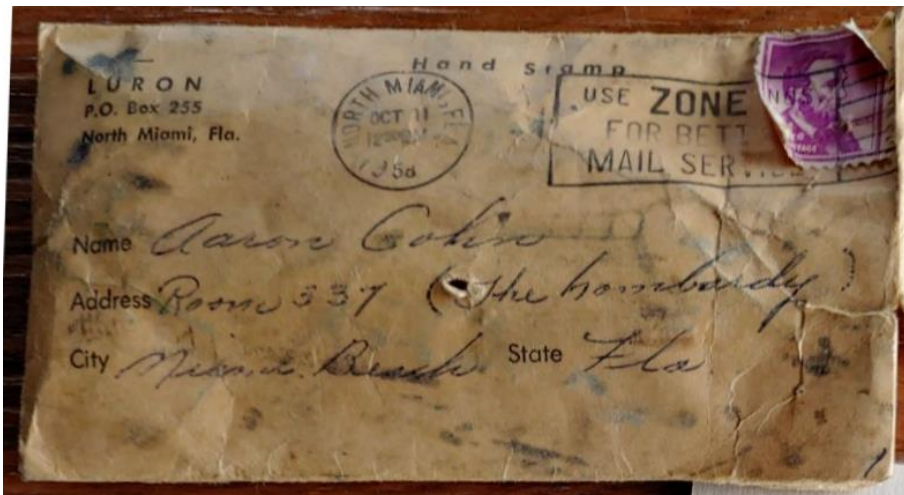 Hand Stamp
LURON
P.O. Box 255
North Miami, Fla.
NORTH MIAMI, FLA
OCT 11
1958
USE ZONE
FOR BETT
MAIL SER
Name Aaron Cohn
Address Room 337 (The Lombardy)
City Miami Beach State Fla.